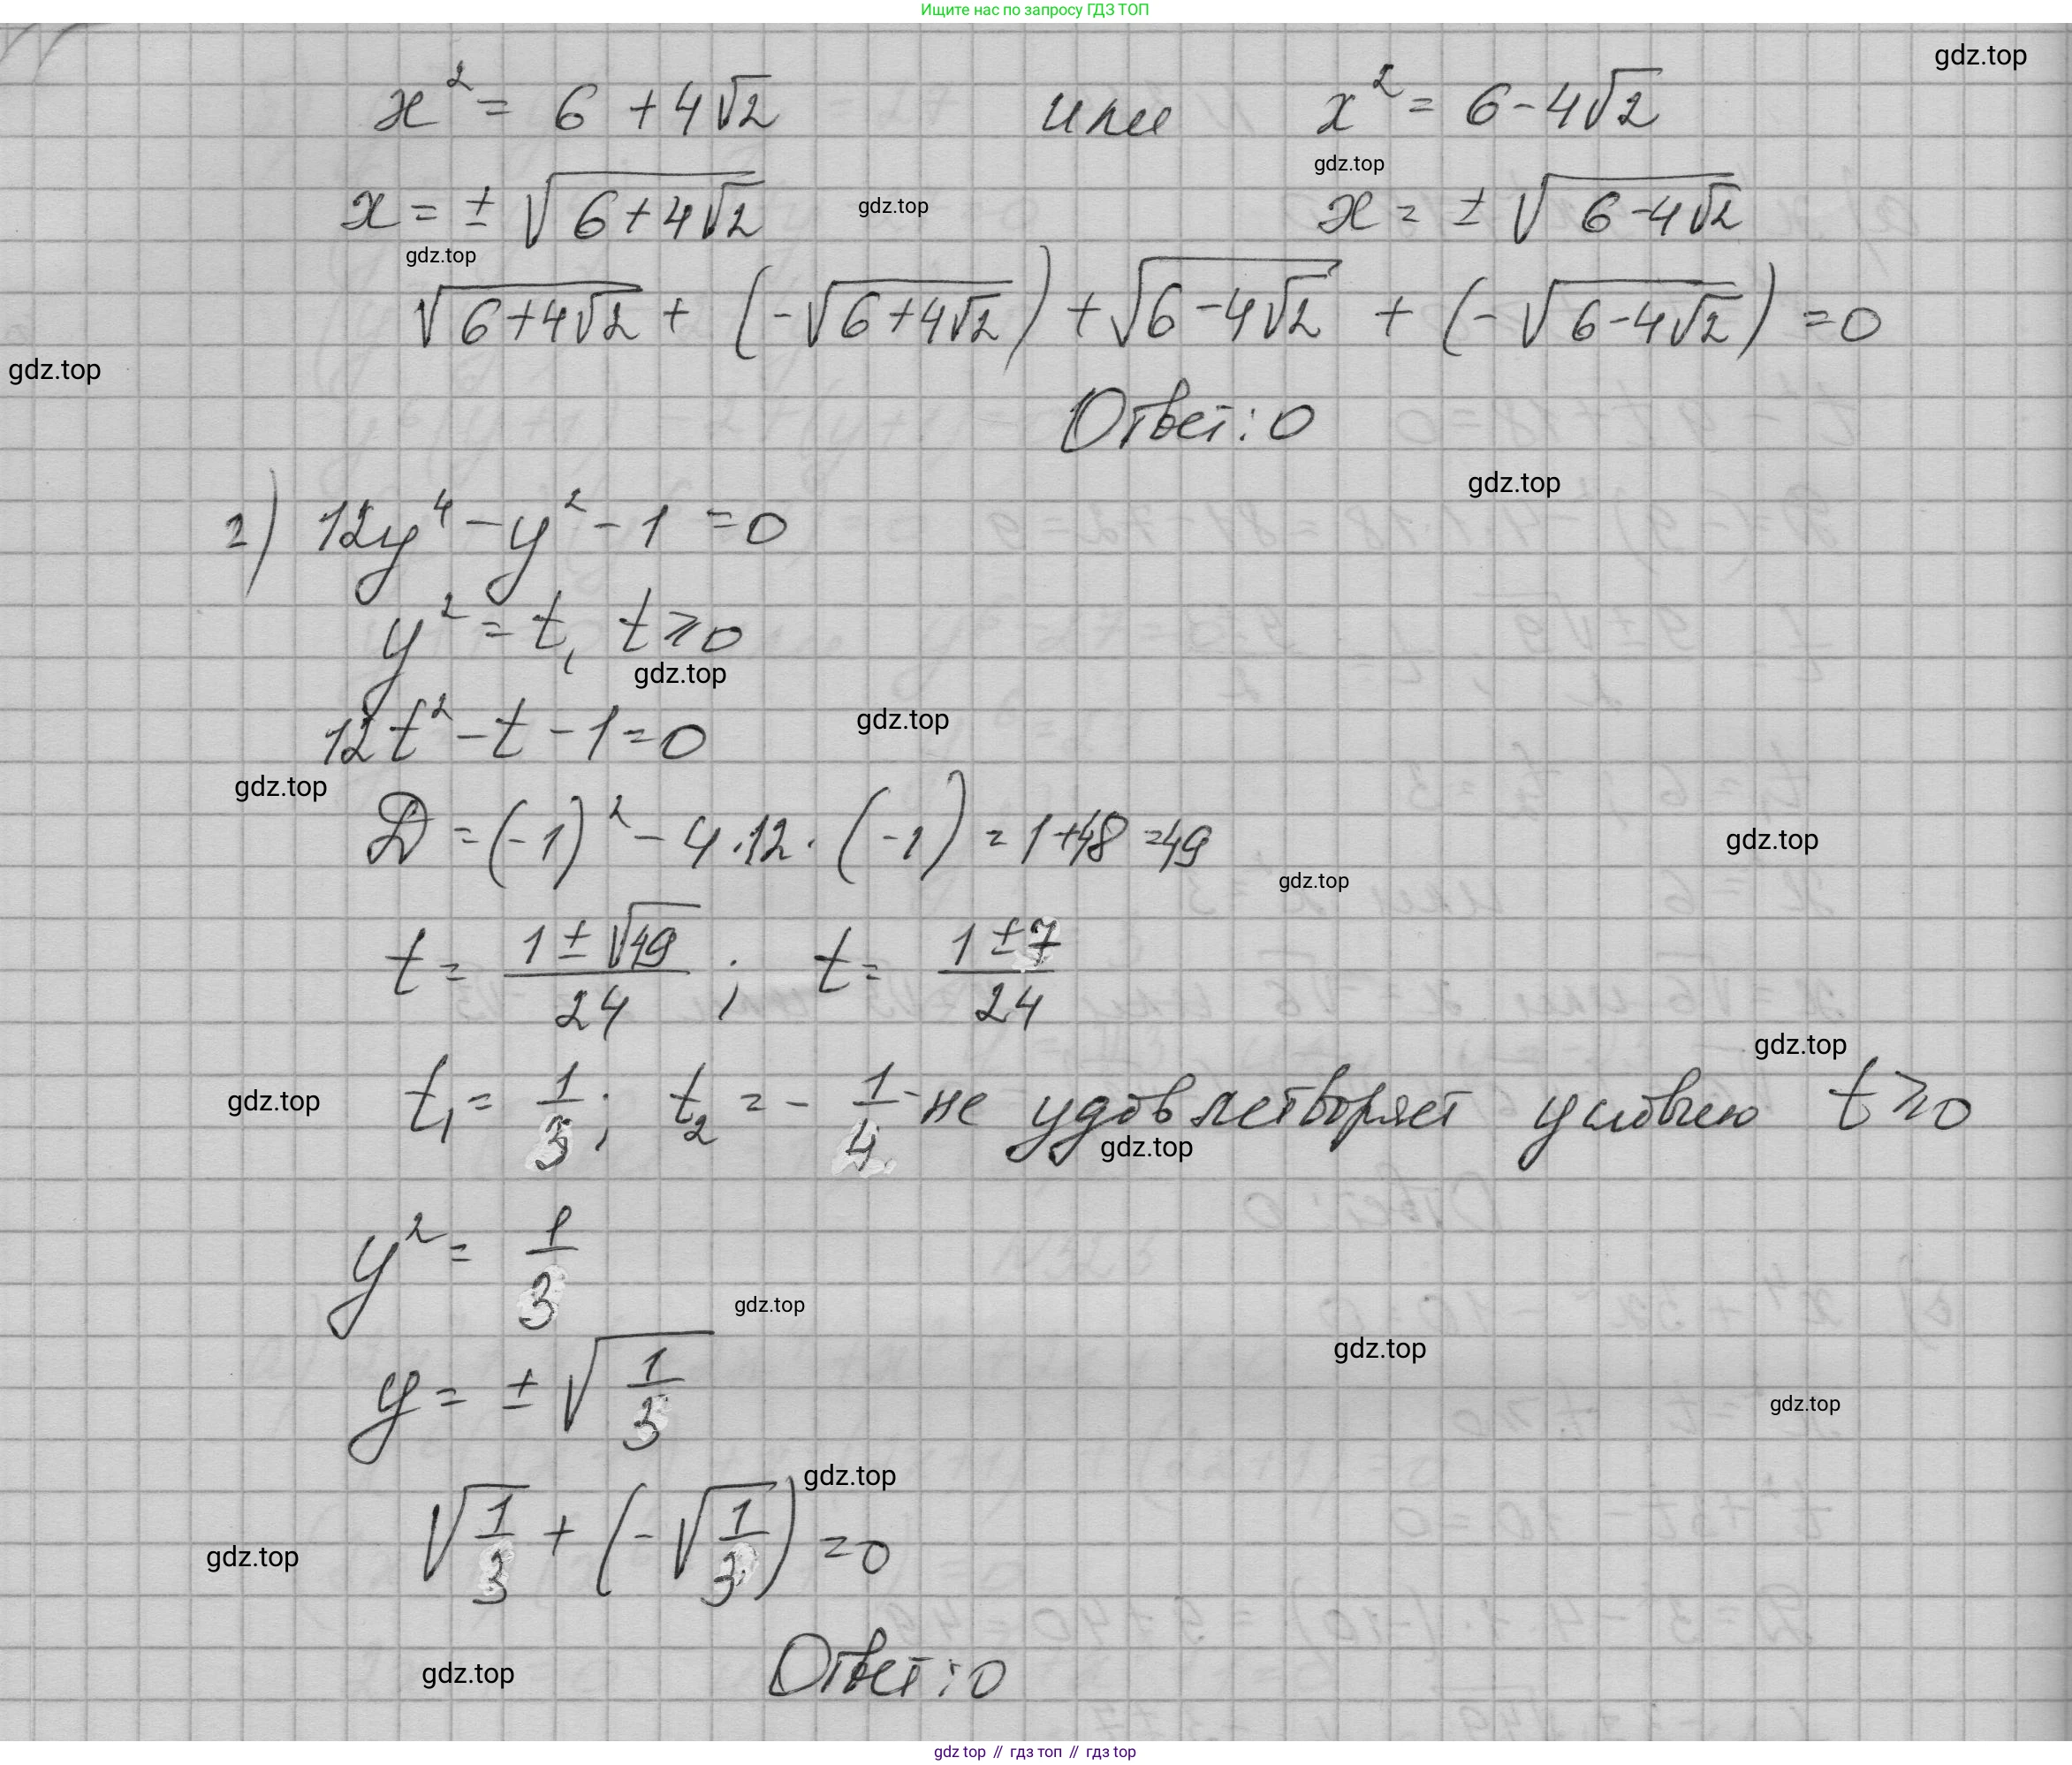 Ищите нас по запросу ГДЗ ТОП
gdz.top
x² = 6 + 4√2 или x² = 6 - 4√2
gdz.top
x = ± √(6 + 4√2) gdz.top x = ± √(6 - 4√2)
gdz.top
√(6 + 4√2) + (-√(6 + 4√2)) + √(6 - 4√2) + (-√(6 - 4√2)) = 0
gdz.top
Ответ: 0
gdz.top
2) 12y⁴ - y² - 1 = 0
y² = t, t ⩾ 0
gdz.top
12t² - t - 1 = 0
gdz.top
gdz.top
D = (-1)² - 4·12·(-1) = 1 + 48 = 49
gdz.top
gdz.top
t = (1 ± √49)/24 ; t = (1 ± 7)/24
gdz.top
gdz.top
t₁ = 1/3 ; t₂ = - 1/4 - не удовлетворяет условию t ⩾ 0
gdz.top
y² = 1/3
gdz.top
gdz.top
y = ± √(1/3)
gdz.top
gdz.top
√(1/3) + (-√(1/3)) = 0
gdz.top
gdz.top
Ответ: 0
gdz top // гдз топ // gdz top